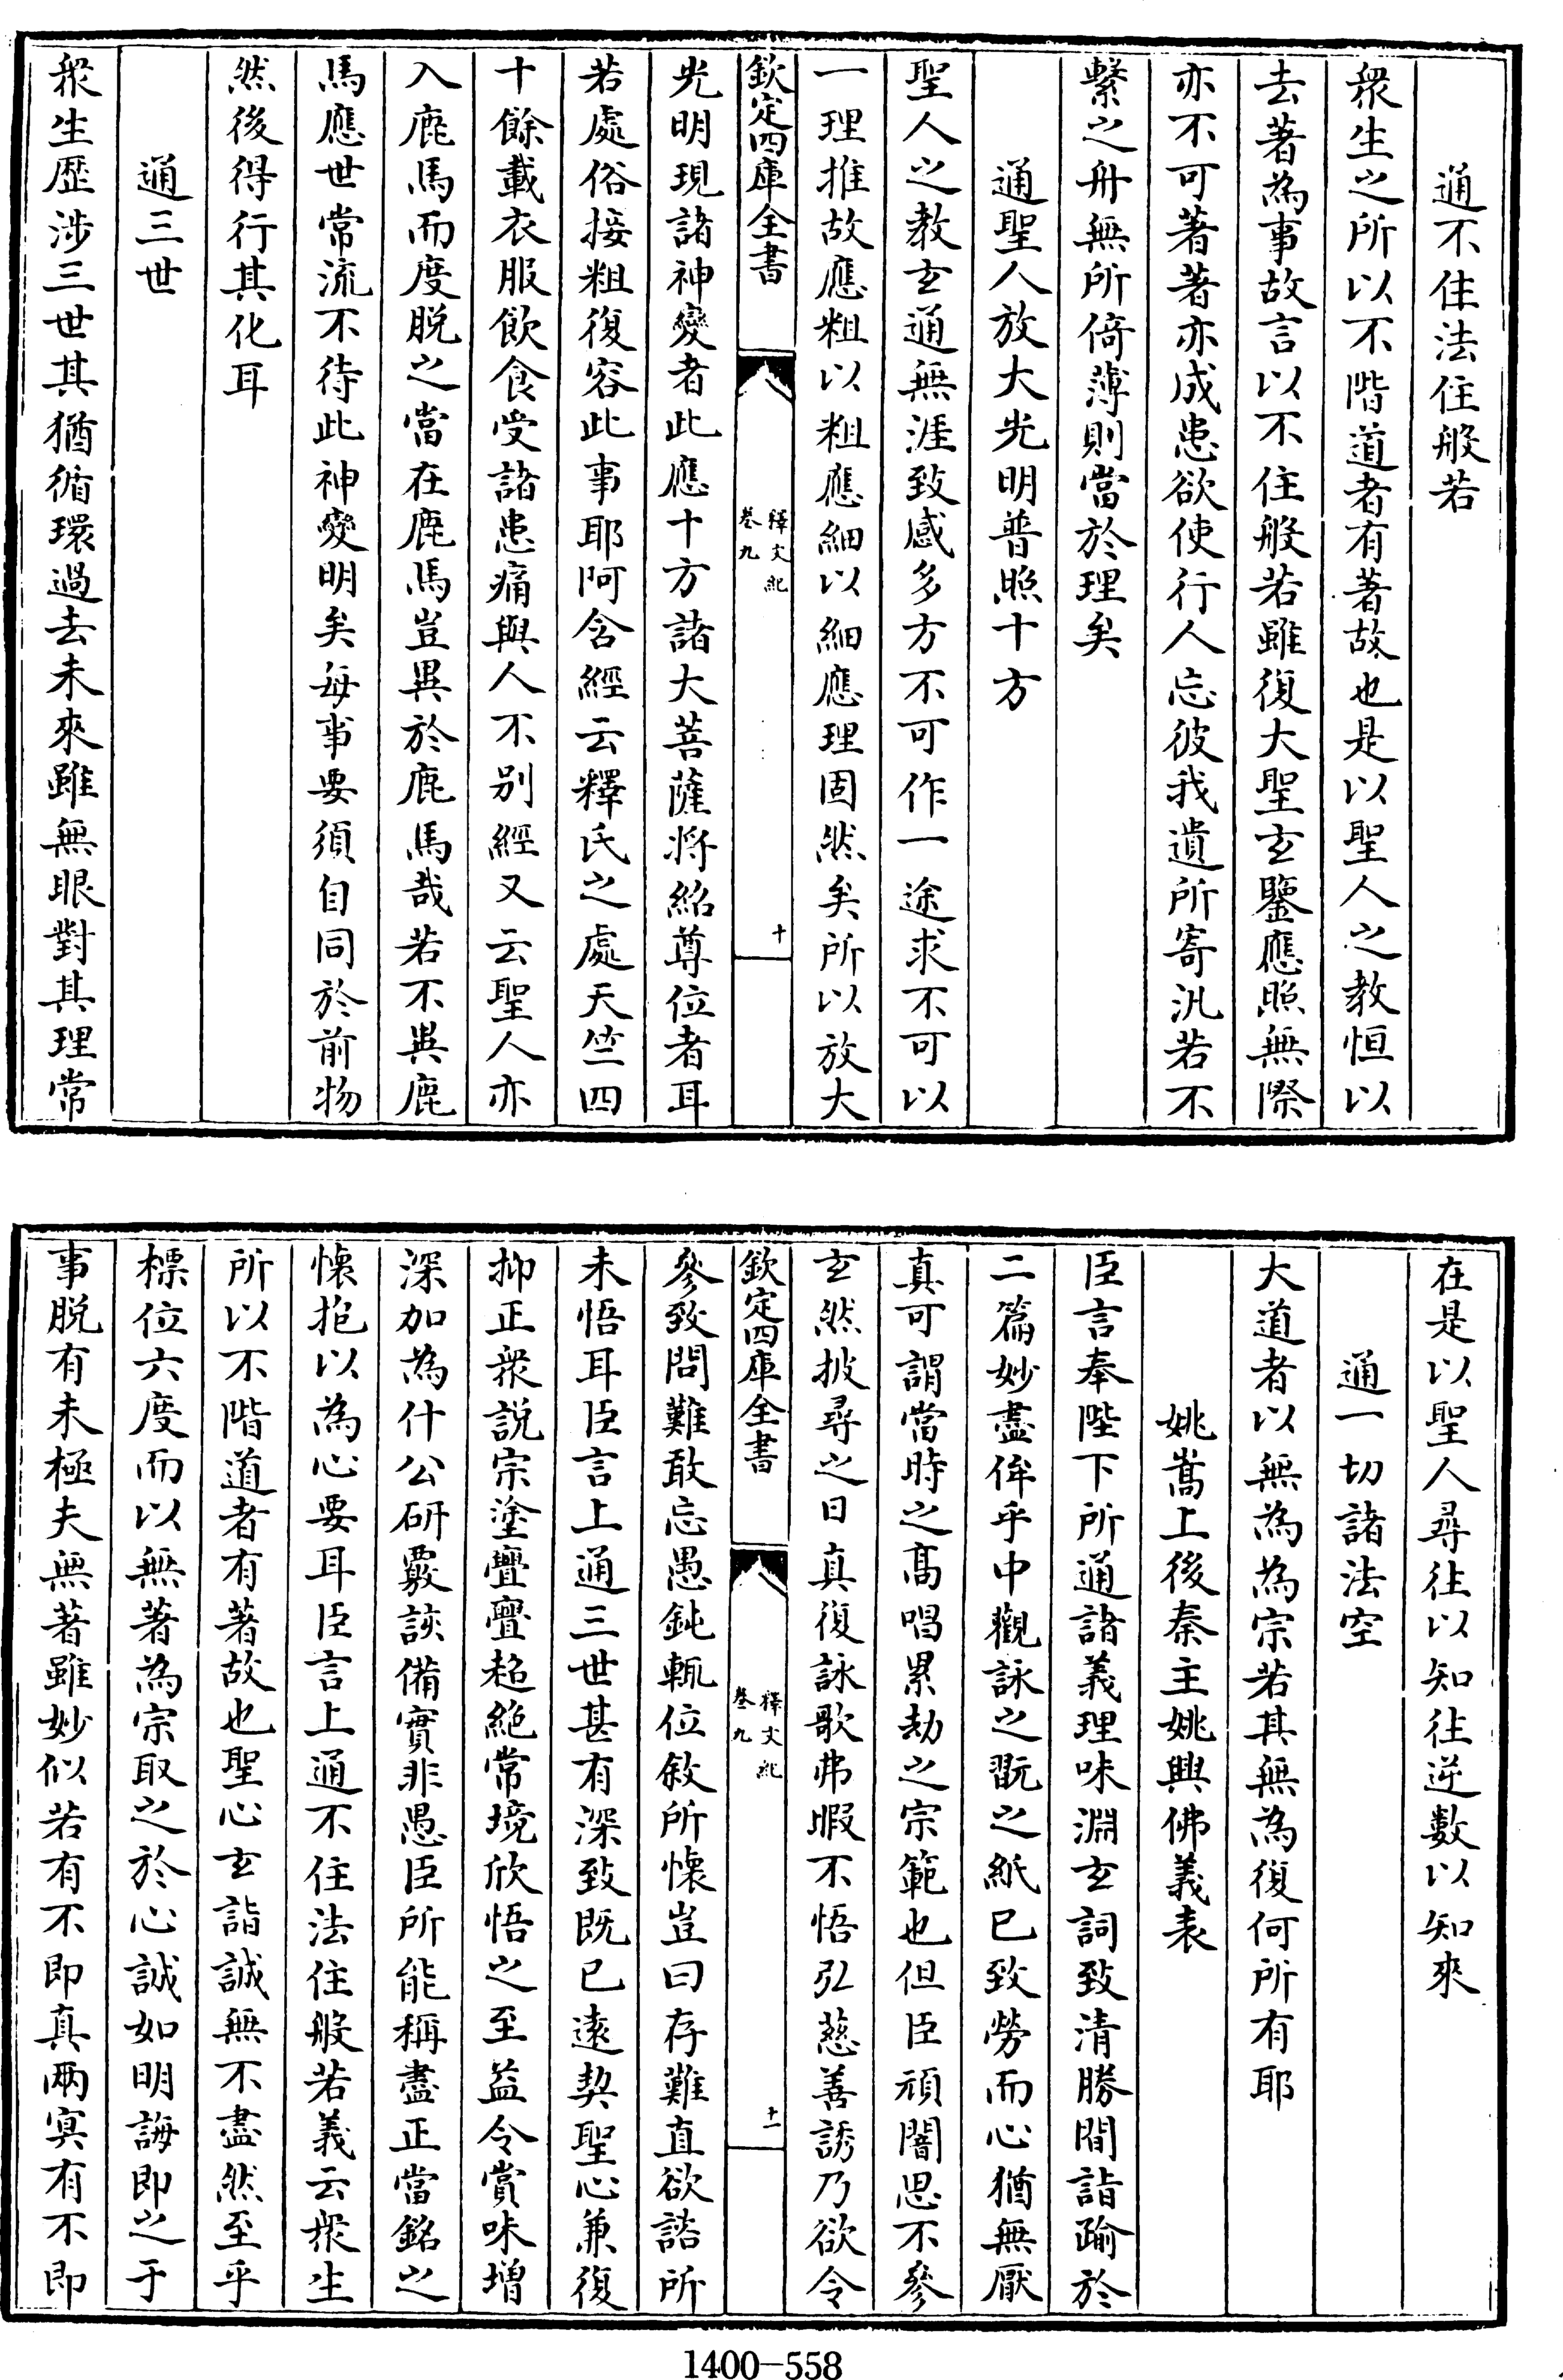 通不住法住般若
衆生之所以不階道者有著故也是以聖人之教恒以
去著為事故言以不住般若雖復大聖玄鑒應照無際
亦不可著著亦成患欲使行人忘彼我遺所寄汎若不
繫之舟無所倚薄則當於理矣
通聖人放大光明普照十方
聖人之教玄通無涯致感多方不可作一途求不可以
一理推故應粗以粗應細以細應理固然矣所以放大
欽定四庫全書
釋文紀
卷九
十
光明現諸神變者此應十方諸大菩薩將紹尊位者耳
若處俗接粗復容此事耶阿含經云釋氏之處天竺四
十餘載衣服飲食受諸患痛與人不别經又云聖人亦
入鹿馬而度脱之當在鹿馬豈異於鹿馬哉若不異鹿
馬應世常流不待此神變明矣每事要須自同於前物
然後得行其化耳
通三世
衆生歴涉三世其猶循環過去未來雖無眼對其理常
在是以聖人尋往以知往逆數以知來
通一切諸法空
大道者以無為為宗若其無為復何所有耶
姚嵩上後秦主姚興佛義表
臣言奉陛下所通諸義理味淵玄詞致清勝間詣踰於
二篇妙盡侔乎中觀詠之翫之紙已致勞而心猶無厭
真可謂當時之髙唱累劫之宗範也但臣頑闇思不參
玄然披尋之日真復詠歌弗暇不悟弘慈善誘乃欲令
欽定四庫全書
釋文紀
卷九
十一
參致問難敢忘愚鈍輒位敘所懷豈曰存難直欲諮所
未悟耳臣言上通三世甚有深致既已遠契聖心兼復
抑正衆説宗塗亹亹超絶常境欣悟之至益令賞味增
深加為什公研覈該備實非愚臣所能稱盡正當銘之
懐抱以為心要耳臣言上通不住法住般若義云衆生
所以不階道者有著故也聖心玄詣誠無不盡然至乎
標位六度而以無著為宗取之於心誠如明誨即之于
事脱有未極夫無著雖妙似若有不即真兩冥有不即
1400—558